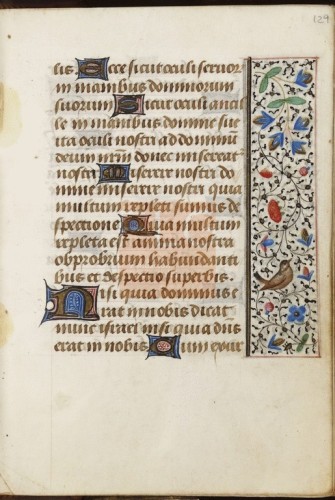 129
lis Ecce sicut oculi seruor
in manibus dominorum
suorum Sicut oculi ancil
le in manibus domine sue
ita oculi nostri ad dominū
deum nr̄m donec misereat̾
nostri Miserere nostri do
mine miserere nostri quia
multum repleti sumus de
spectione Quia multum
repleta est anima nostra
obprobrium habundanti
bus et despectio superbis.
Nisi quia dominus e
rat in nobis dicat
nunc israel nisi quia dn̄s
erat in nobis Cum exur